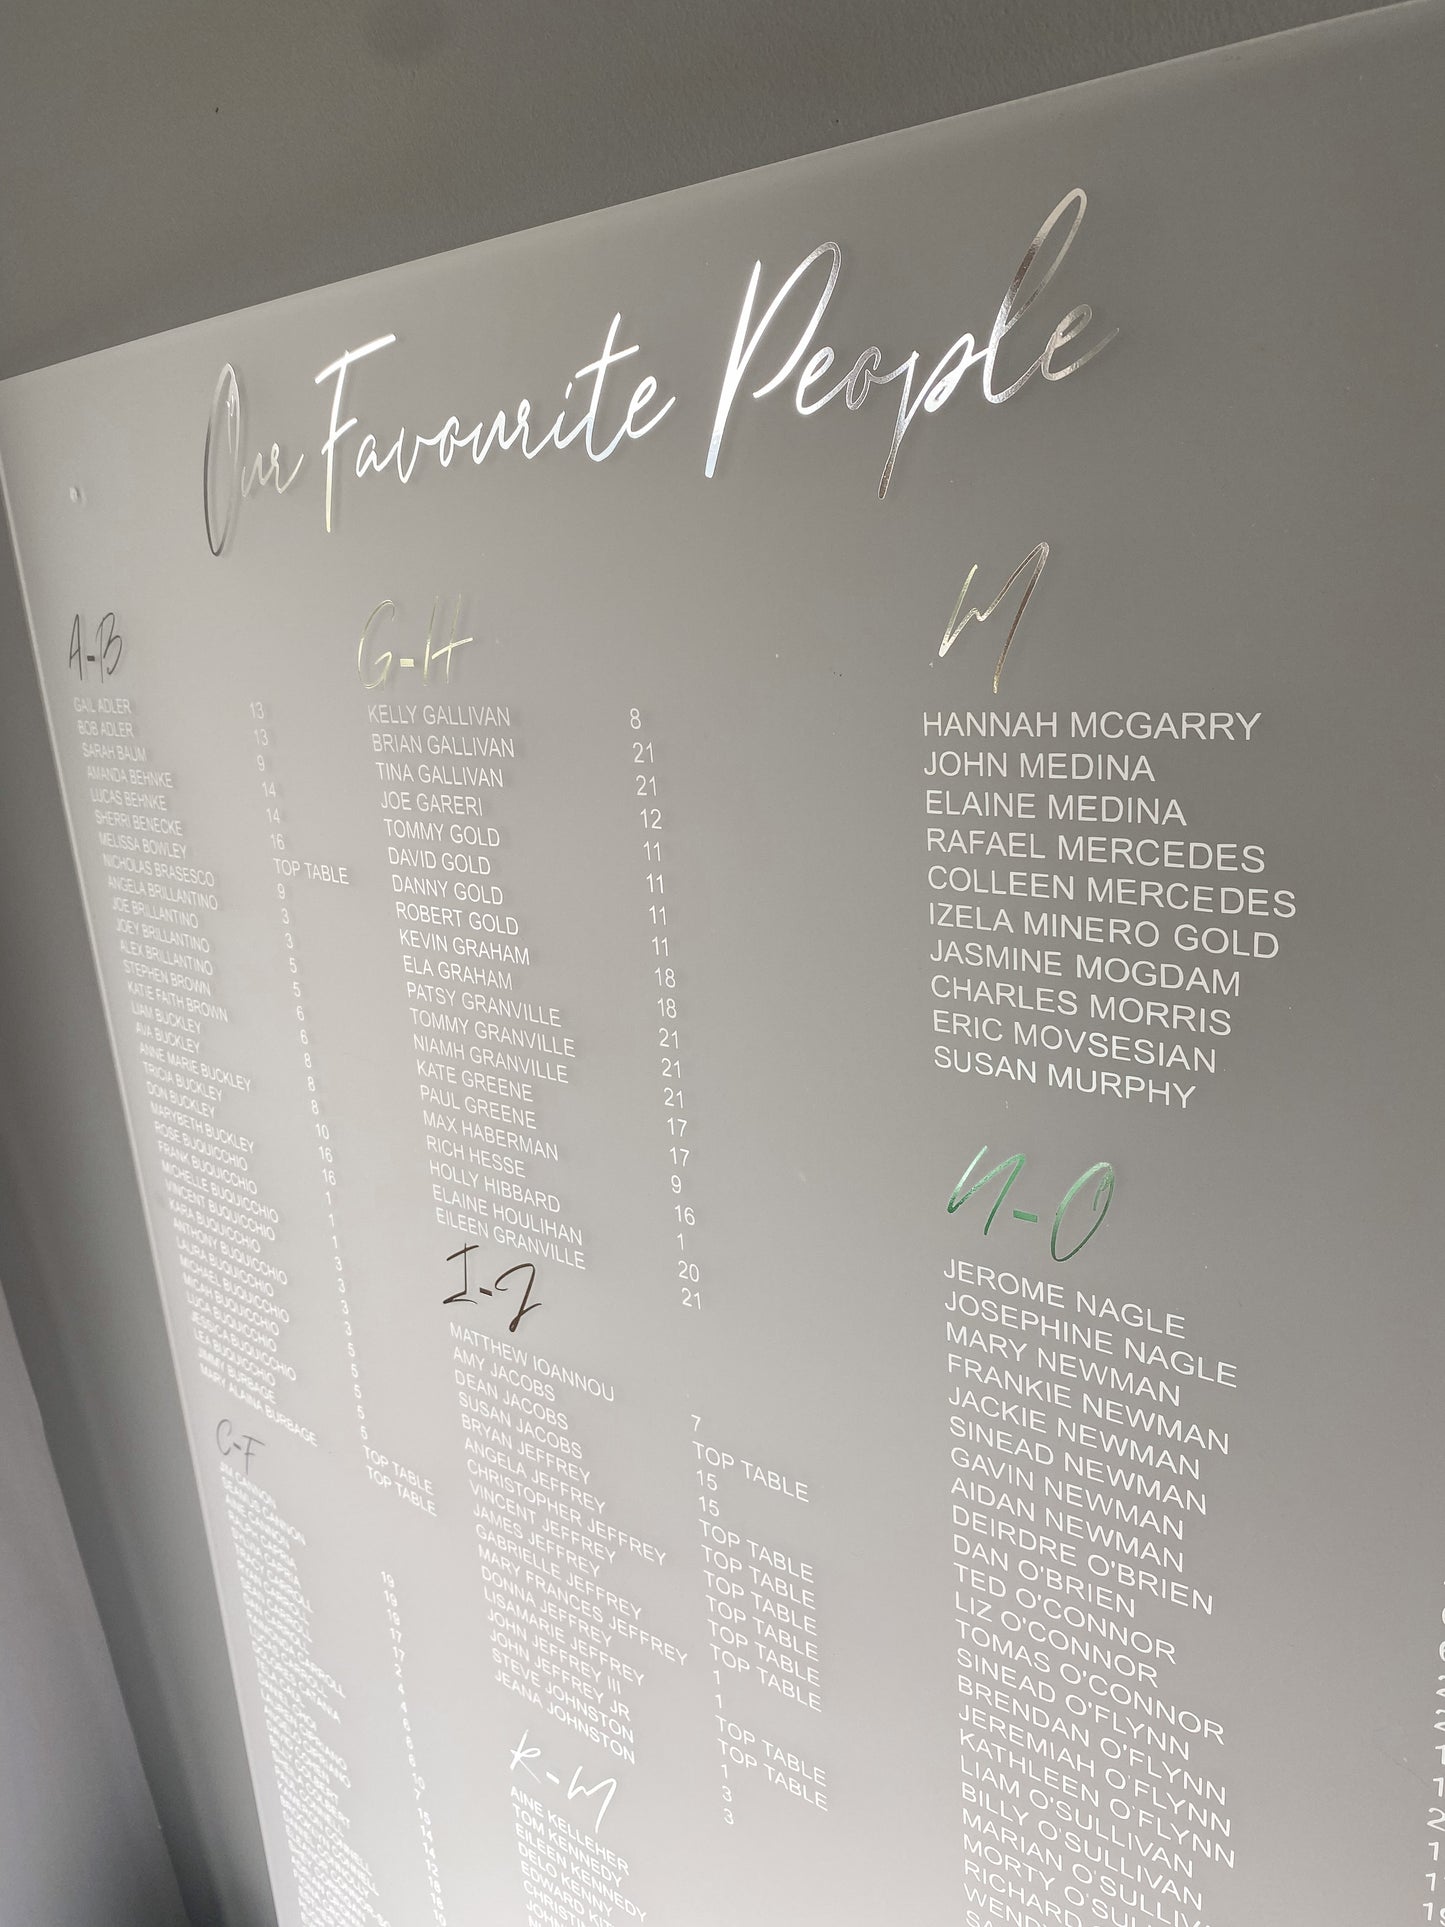 Our Favourite People
A-B
GAIL ADLER 13
BOB ADLER 13
SARAH BAUM 9
AMANDA BEHNKE 14
LUCAS BEHNKE 14
SHERRI BENECKE 16
MELISSA BOWLEY TOP TABLE
NICHOLAS BRASESCO 9
ANGELA BRILLANTINO 3
JOE BRILLANTINO 3
JOEY BRILLANTINO 5
ALEX BRILLANTINO 5
STEPHEN BROWN 6
KATIE FAITH BROWN 6
LIAM BUCKLEY 8
AVA BUCKLEY 8
ANNE MARIE BUCKLEY 8
TRICIA BUCKLEY 10
DON BUCKLEY 16
MARYBETH BUCKLEY 16
ROSE BUQUICCHIO 1
FRANK BUQUICCHIO 1
MICHELLE BUQUICCHIO 1
VINCENT BUQUICCHIO 3
KARA BUQUICCHIO 3
ANTHONY BUQUICCHIO 3
LAURA BUQUICCHIO 3
MICHAEL BUQUICCHIO 5
MICAH BUQUICCHIO 5
LUCA BUQUICCHIO 5
JESSICA BUQUICCHIO 5
LEA BUQUICCHIO 5
JIMMY BURBAGE TOP TABLE
MARY ALAINA BURBAGE TOP TABLE
C-F
JIM CANNON 19
CANNON 19
CAPRIA
CAPRIA
CARROLL
G-H
KELLY GALLIVAN 8
BRIAN GALLIVAN 21
TINA GALLIVAN 21
JOE GARERI 12
TOMMY GOLD 11
DAVID GOLD 11
DANNY GOLD 11
ROBERT GOLD 11
KEVIN GRAHAM 18
ELA GRAHAM 18
PATSY GRANVILLE 21
TOMMY GRANVILLE 21
NIAMH GRANVILLE 21
KATE GREENE 17
PAUL GREENE 17
MAX HABERMAN 9
RICH HESSE 16
HOLLY HIBBARD 1
ELAINE HOULIHAN 20
EILEEN GRANVILLE 21
I-J
MATTHEW IOANNOU 7
AMY JACOBS TOP TABLE
DEAN JACOBS 15
SUSAN JACOBS 15
BRYAN JEFFREY TOP TABLE
ANGELA JEFFREY TOP TABLE
CHRISTOPHER JEFFREY TOP TABLE
VINCENT JEFFREY TOP TABLE
JAMES JEFFREY TOP TABLE
GABRIELLE JEFFREY TOP TABLE
MARY FRANCES JEFFREY 1
DONNA JEFFREY 1
LISAMARIE JEFFREY TOP TABLE
JOHN JEFFREY III TOP TABLE
JOHN JEFFREY JR 1
STEVE JOHNSTON 3
JEANA JOHNSTON 3
K-M
AINE KELLEHER
TOM KENNEDY
EILEEN KENNEDY
DELO KENNY
EDWARD
M
HANNAH MCGARRY
JOHN MEDINA
ELAINE MEDINA
RAFAEL MERCEDES
COLLEEN MERCEDES
IZELA MINERO GOLD
JASMINE MOGDAM
CHARLES MORRIS
ERIC MOVSESIAN
SUSAN MURPHY
N-O
JEROME NAGLE
JOSEPHINE NAGLE
MARY NEWMAN
FRANKIE NEWMAN
JACKIE NEWMAN
SINEAD NEWMAN
GAVIN NEWMAN
AIDAN NEWMAN
DEIRDRE O'BRIEN
DAN O'BRIEN
TED O'CONNOR
LIZ O'CONNOR
TOMAS O'CONNOR
SINEAD O'FLYNN
BRENDAN O'FLYNN
JEREMIAH O'FLYNN
KATHLEEN O'FLYNN
LIAM O'SULLIVAN
BILLY O'SULLIVAN
MARIAN O'SULLIV
MORTY O'SU
RICHARD
WEND